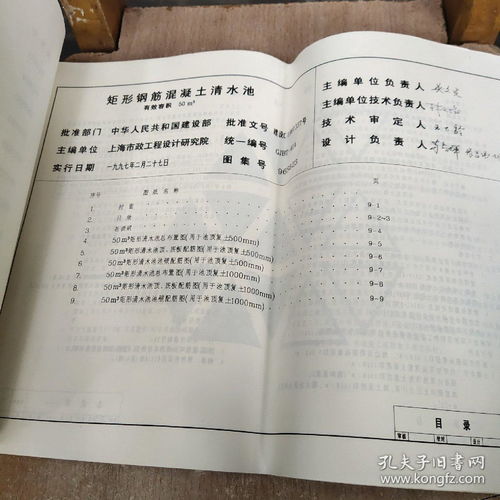 矩形钢筋混凝土清水池
有效容积 50m³
批准部门 中华人民共和国建设部 批准文号
主编单位 上海市政工程设计研究院 统一编号
实行日期 一九九七年二月二十七日 图集号
主编单位负责人
主编单位技术负责人
技术审定人
设计负责人
序号 图纸名称 页
1. 封面 9-1
2. 目录 9-2~3
3.
4. 50m³矩形清水池总布置图(用于池顶复土500mm)
5. 50m³矩形清水池顶、底板配筋图(用于池顶复土500mm) 9-5
6. 50m³矩形清水池池壁配筋图(用于池顶复土500mm) 9-6
7. 50m³矩形清水池总布置图(用于池顶复土1000mm) 9-7
8. 50m³矩形清水池顶、底板配筋图(用于池顶复土1000mm) 9-8
9. 50m³矩形清水池池壁配筋图(用于池顶复土1000mm) 9-9
目录
审核 校对 设计
孔夫子旧书网